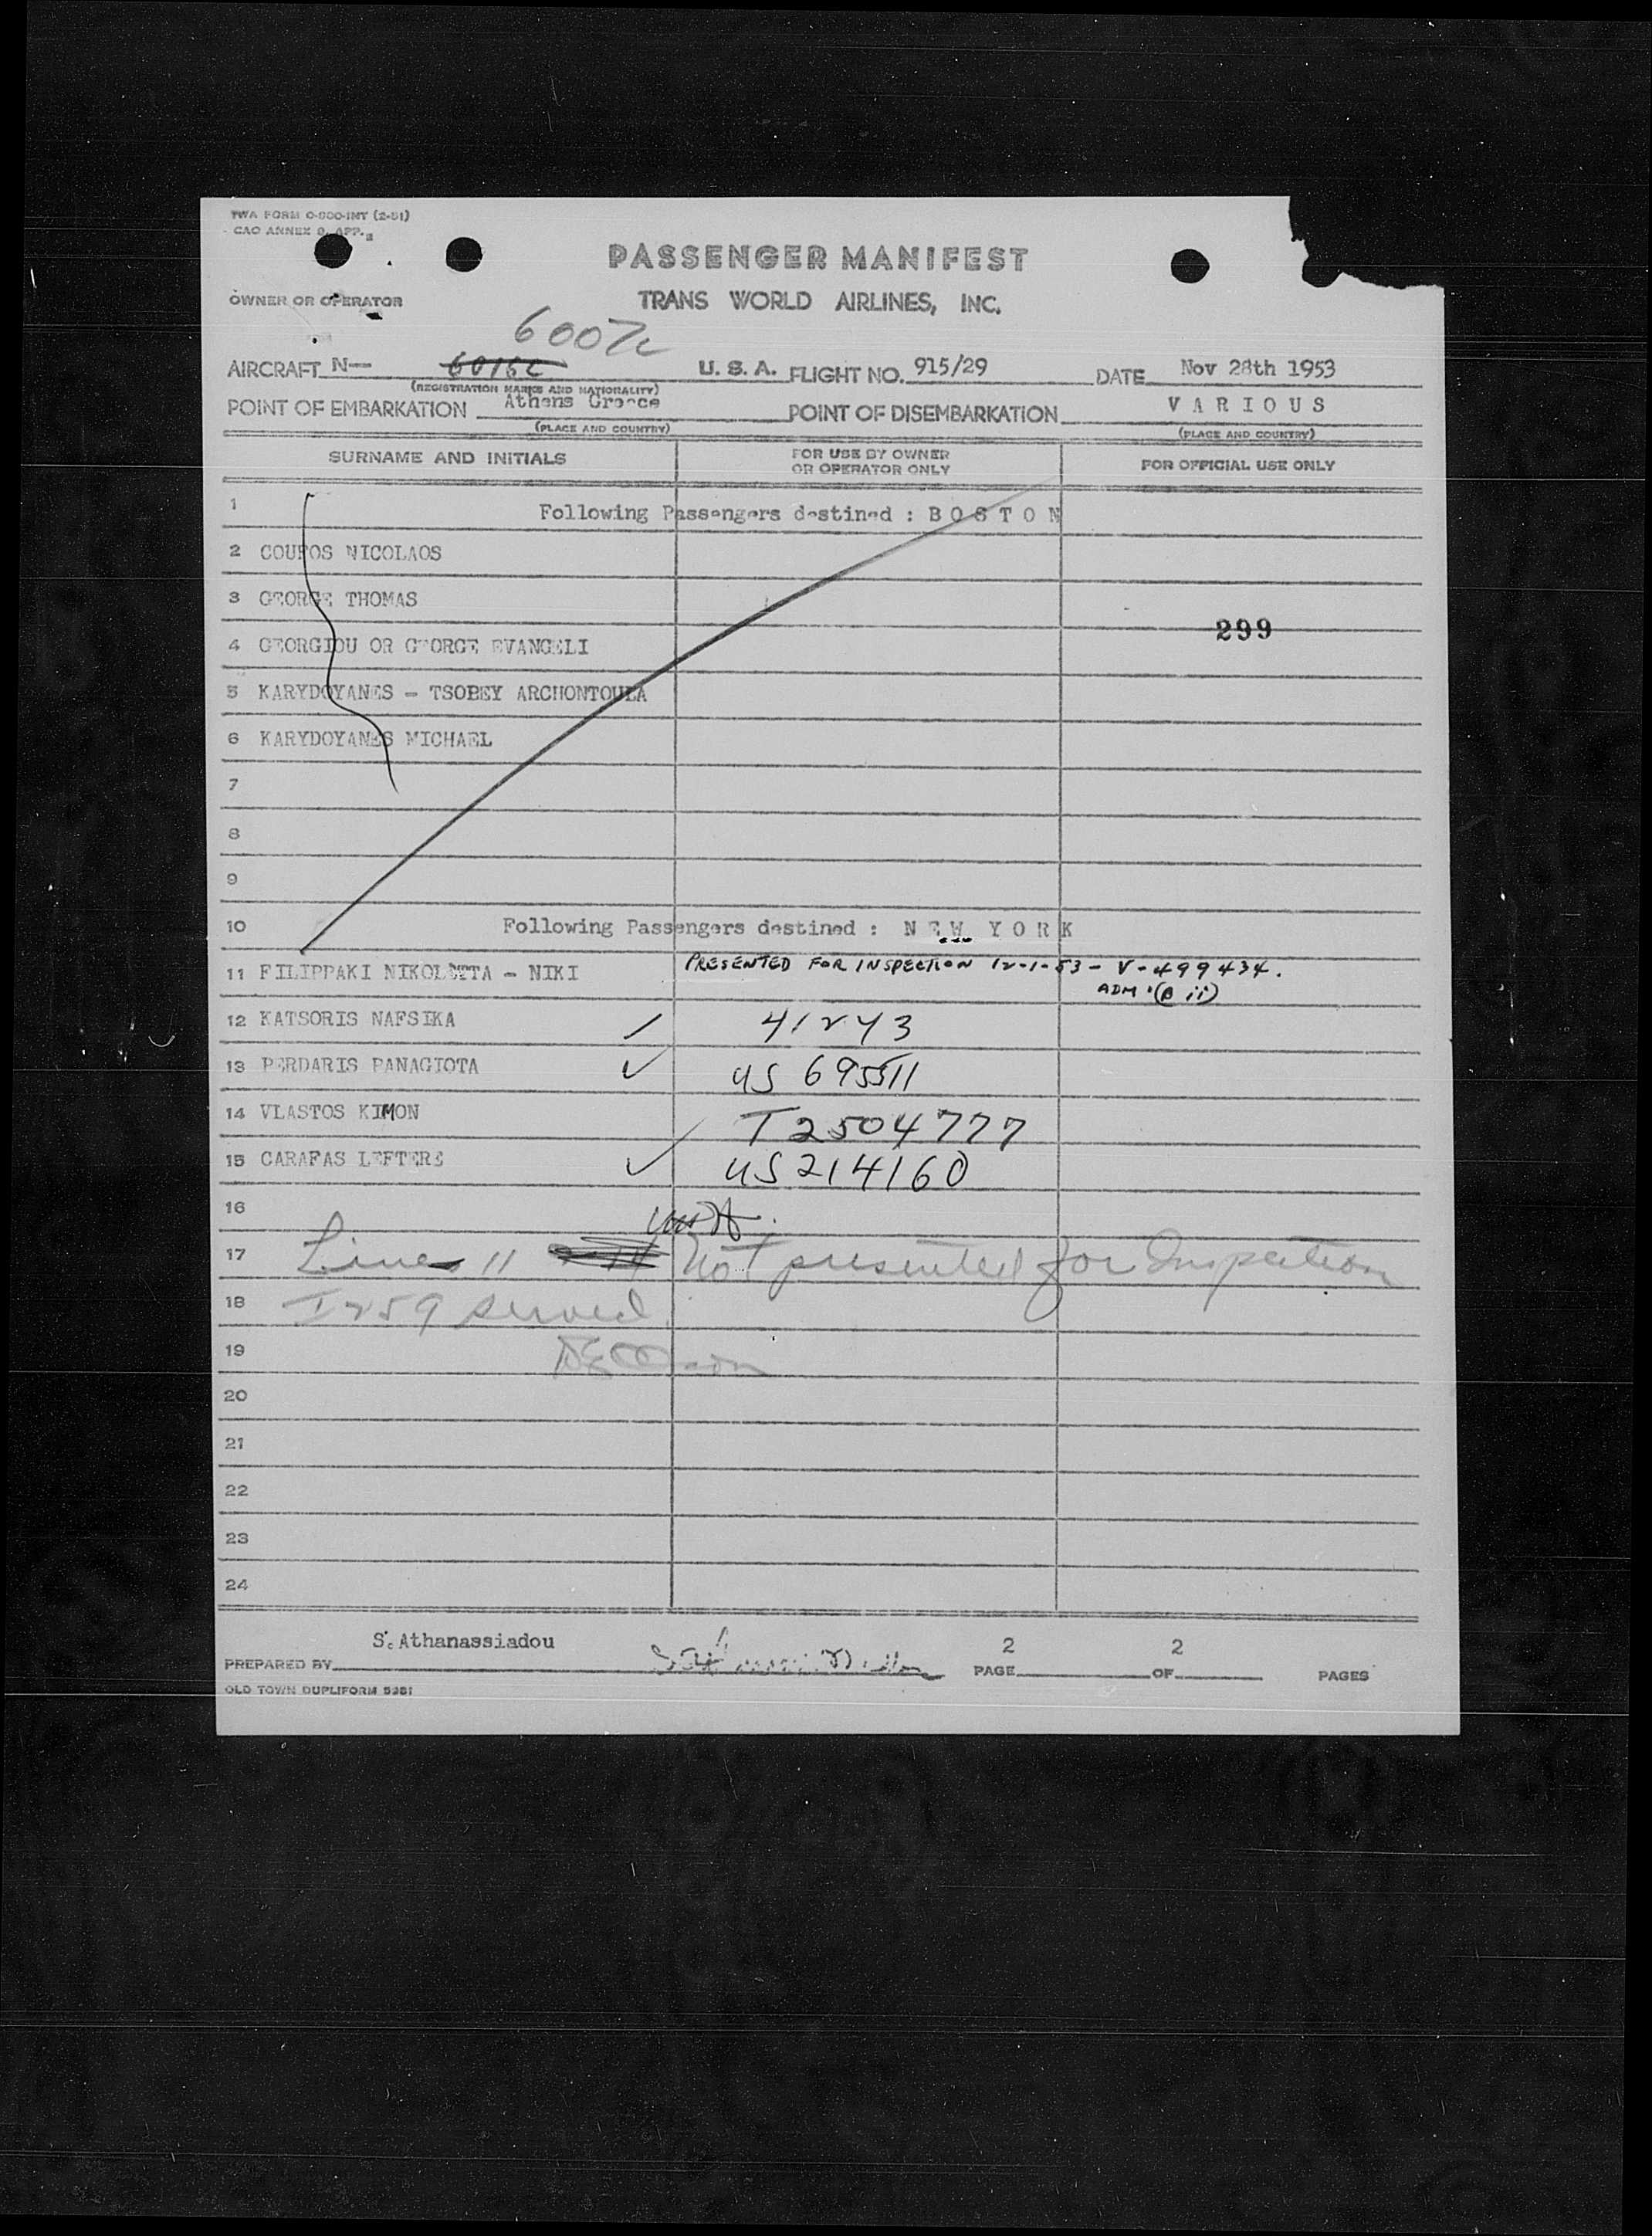 TWA FORM O-800-INT (2-51)
CAO ANNEX 9, APP.
PASSENGER MANIFEST
OWNER OR OPERATOR TRANS WORLD AIRLINES, INC.
6007c
AIRCRAFT N— 6016C U. S. A. FLIGHT NO. 915/29 DATE Nov 28th 1953
(REGISTRATION MARKS AND NATIONALITY)
POINT OF EMBARKATION Athens Greece POINT OF DISEMBARKATION V A R I O U S
(PLACE AND COUNTRY) (PLACE AND COUNTRY)
SURNAME AND INITIALS FOR USE BY OWNER OR OPERATOR ONLY FOR OFFICIAL USE ONLY
1 Following Passengers destined : B O S T O N
2 COUPOS NICOLAOS
3 GEORGE THOMAS
299
4 GEORGIOU OR GEORGE EVANGELI
5 KARYDOYANES - TSOBEY ARCHONTOULA
6 KARYDOYANES MICHAEL
7
8
9
10 Following Passengers destined : N E W Y O R K
11 FILIPPAKI NIKOLETTA - NIKI PRESENTED FOR INSPECTION 12-1-53 - V-499434.
ADM. (B ii)
12 KATSORIS NAFSIKA 41243
13 PERDARIS PANAGIOTA US 695511
14 VLASTOS KIMON T2504777
15 CARAFAS LEFTERE US214160
16
17 Line 11 Not presented for Inspection
18 I259 served
19
20
21
22
23
24
S. Athanassiadou
PREPARED BY PAGE 2 OF 2 PAGES
OLD TOWN DUPLIFORM 5281